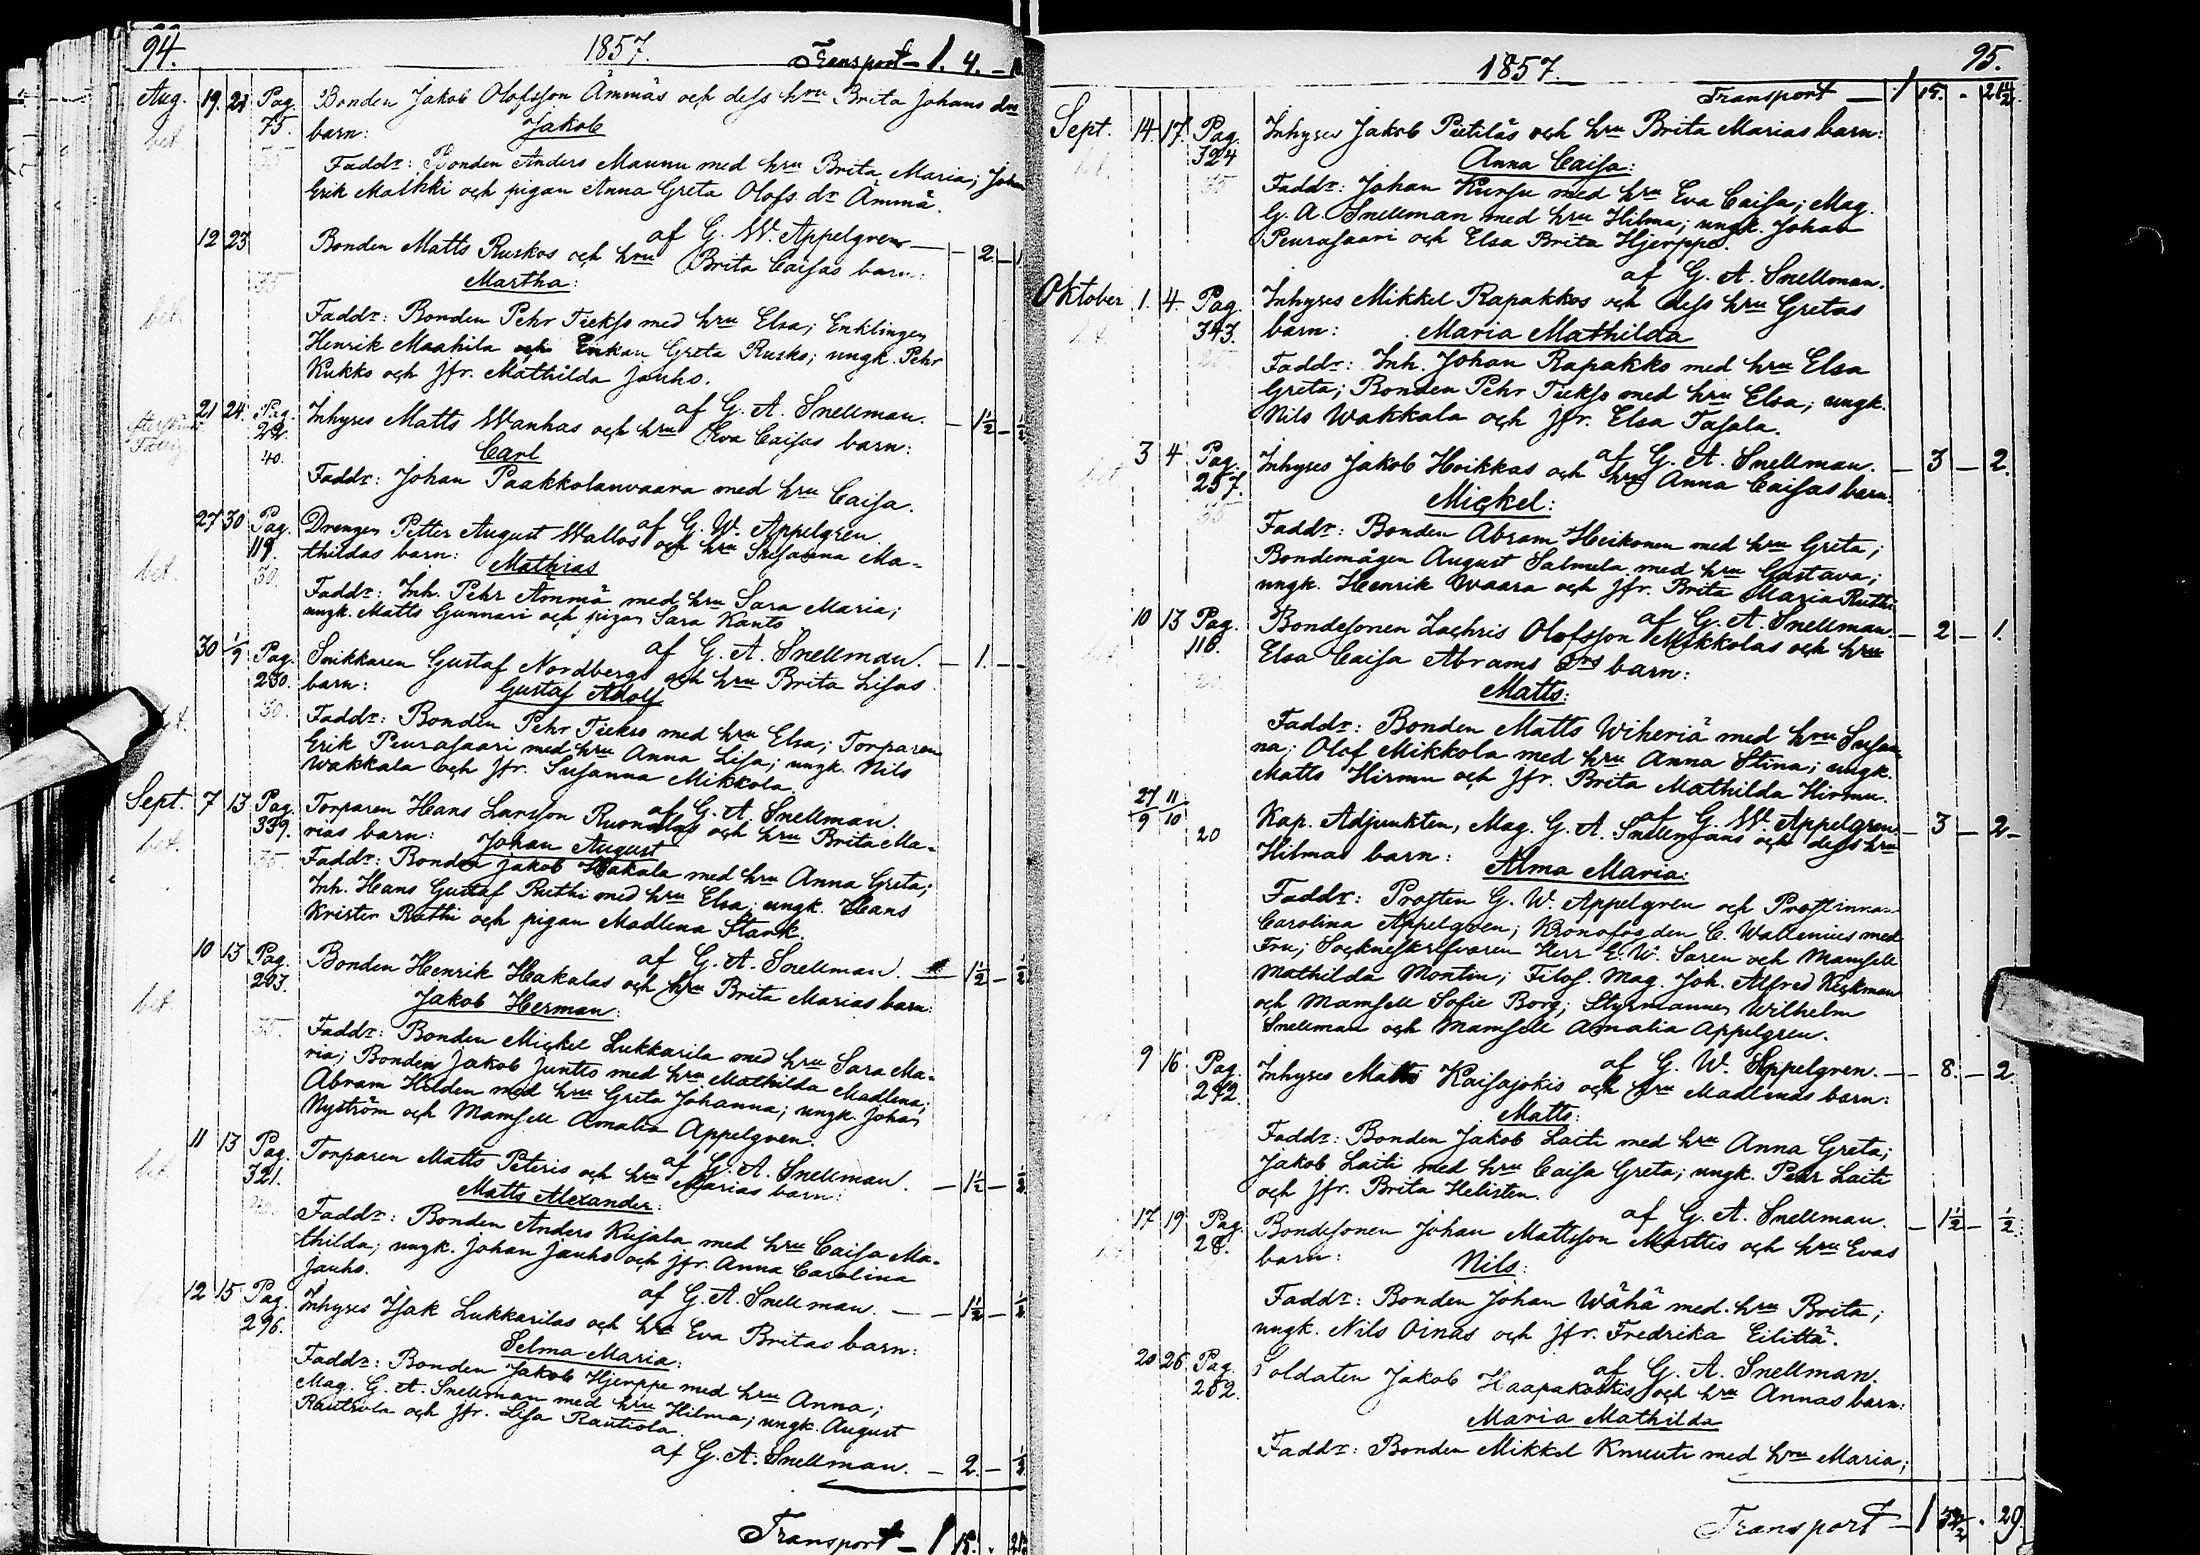 94.
1857.
Transport – 1. 4. –
Aug. 19. 21 Pag. 75. Bonden Jakob Olofsson Ämmäs och dess hru Brita Johans dr
bet. barn: Jakob
Faddr: Bonden Anders Maunu med hru Brita Maria; Johan
Erik Malkki och pigan Anna Greta Olofs dr Ämmä.
af G. W. Appelgren – 2 – 1.
12 23 Bonden Matts Ruskos och hru Brita Caisas barn:
35 Martha:
bet. Faddr: Bonden Pehr Tiekso med hru Elsa; Enklingen
Henrik Maahila och Enkan Greta Rusko; ungk. Pehr
Kukko och jfr. Mathilda Jauho.
af G. A. Snellman. – 1½ – ½
21 24. Pag. 22. Inhyses Matts Wanhas och hru Eva Caisas barn:
40. Carl
Faddr: Johan Paakkolanvaara med hru Caisa.
af G. W. Appelgren.
27 30 Pag. 119. Drengen Petter August Wallos och hru Susanna Ma-
thildas barn: Mathias
bet. 30. Faddr: Inh. Pehr Ämmä med hru Sara Maria;
ungk. Matts Gunnari och pigan Sara Kanto
af G. A. Snellman. – 1. –
30 1/9 Pag. 230. Snikkaren Gustaf Nordbergs och hru Brita Lisas
barn: Gustaf Adolf
30. Faddr: Bonden Pehr Tiekso med hru Elsa; Torparen
Erik Peurasaari med hru Anna Lisa; ungk. Nils
Wakkala och jfr. Susanna Mikkola.
af G. A. Snellman.
Sept. 7 13 Pag. 339. Torparen Hans Larsson Ruonalas och hru Brita Ma-
bet. rias barn: Johan August
35 Faddr: Bonden Jakob Hakala med hru Anna Greta;
Inh. Hans Gustaf Ruthi med hru Elsa; ungk. Hans
Krister Ruthi och pigan Madlena Stark.
af G. A. Snellman. – 1½ – ½
10 13 Pag. 203. Bonden Henrik Hakalas och hru Brita Marias barn:
bet. Jakob Herman:
35 Faddr: Bonden Mickel Lukkarila med hru Sara Ma-
ria; Bonden Jakob Juntto med hru Mathilda Madlena;
Abram Hilden med hru Greta Johanna; ungk. Johan
Nyström och Mamsell Amalia Appelgren.
af G. A. Snellman. – 1½ – ½
11 13 Pag. 321. Torparen Matts Peteris och hru Marias barn:
bet. Matts Alexander:
Faddr: Bonden Anders Kujala med hru Caisa Ma-
thilda; ungk. Johan Jauho och jfr. Anna Carolina
Jauho.
af G. A. Snellman. – 1½ – ½
12 15 Pag. 296. Inhyses Isak Lukkarilas och hru Eva Britas barn:
Selma Maria:
Faddr: Bonden Jakob Hjerppe med hru Anna;
Mag. G. A. Snellman med hru Hilma; ungk. August
Rautiola och jfr. Lisa Rautiola.
af G. A. Snellman. – 2 – ½
Transport – 1 15.
95.
1857.
Transport – 1 15.
Sept. 14 17. Pag. 324 Inhyses Jakob Pietiläs och hru Brita Marias barn:
35 Anna Caisa:
Faddr: Johan Kursu med hru Eva Caisa; Mag.
G. A. Snellman med hru Hilma; ungk. Johan
Peurasaari och Elsa Brita Hjerppe.
af G. A. Snellman.
Oktober 1. 4. Pag. 343. Inhyses Mikkel Rapakkos och dess hru Gretas
barn: Maria Mathilda
Faddr: Inh. Johan Rapakko med hru Elsa
Greta; Bonden Pehr Tiekso med hru Elsa; ungk.
Nils Wakkala och jfr. Elsa Tasala.
af G. A. Snellman. – 3 – 2.
3 4 Pag. 257. Inhyses Jakob Hoikkas och hru Anna Caisas barn:
35 Mickel:
Faddr: Bonden Abram Heikonen med hru Greta;
Bondemågen August Salmela med hru Gustava;
ungk. Henrik Waara och jfr. Brita Maria Ruthi.
af G. A. Snellman. – 2 – 1.
10 13 Pag. 118. Bondesonen Zachris Olofsson Mikkolas och hru
Elsa Caisa Abrams drs barn:
Matts:
Faddr: Bonden Matts Wiheriä med hru Susan-
na; Olof Mikkola med hru Anna Stina; ungk.
Matts Hirmu och jfr. Brita Mathilda Hirmu.
af G. W. Appelgren. – 3 – 2 –
27/9 11/10 20 Kap. Adjunkten, Mag. G. A. Snellmans och dess hru
Hilmas barn: Alma Maria:
Faddr: Prosten G. W. Appelgren och Prostinnan
Carolina Appelgren; Kronofogden C. Wallenius med
Fru; Sockneskrifvaren Herr E. W. Saren och Mamsell
Mathilda Montin; Filos. Mag. Joh. Alfred Kickman
och Mamsell Sofie Borg; Styrmannen Wilhelm
Snellman och Mamsell Amalia Appelgren.
af G. W. Appelgren. – 8. – 2.
9 16 Pag. 242. Inhyses Matts Kaisajokis och hru Madlenas barn:
Matts:
Faddr: Bonden Jakob Laiti med hru Anna Greta;
Jakob Laiti med hru Caisa Greta; ungk. Pehr Laiti
och jfr. Brita Helisten.
af G. A. Snellman. – 1½ – ½
17 19 Pag. 28. Bondesonen Johan Mattsson Marttis och hru Evas
barn: Nils:
Faddr: Bonden Johan Wähä med hru Brita;
ungk. Nils Oinas och jfr. Fredrika Eilittä.
af G. A. Snellman.
20 26. Pag. 252. Soldaten Jakob Haapakoskis och hru Annas barn:
Maria Mathilda
Faddr: Bonden Mikkel Knuuti med hru Maria;
Transport – 1 29.